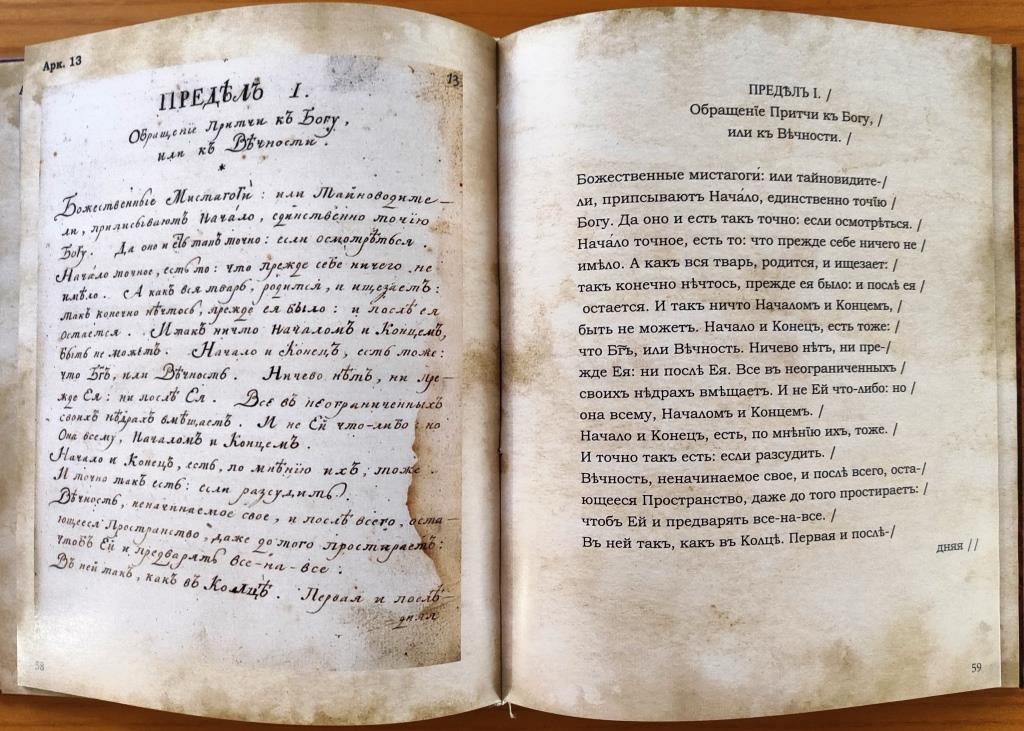 Арк. 13
13
ПРЕДѢЛЪ I.
Обращенїе Притчи къ Богу,
или къ Вѣчности.
*
Божественные Мистагоги́: или Тайноводите—
ли, приписываютъ Нача́ло, единственно точїю
Богу. Да оно и есть такъ точно: если осмотрѣться.
Нача́ло точное, есть то: что прежде себе ничего не
имѣло. А какъ вся тварь, родится, и ищезаетъ:
такъ конечно нѣчтось, прежде ея было: и послѣ ея
остается. Итакъ ничто Началомъ и Концемъ,
быть не можетъ. Начало и Конецъ, есть тоже:
что Бг҃ъ, или Вѣчность. Ничево нѣтъ, ни пре—
жде Ея: ни послѣ Ея. Все въ неограниченныхъ
своихъ нѣдрахъ вмѣщаетъ. И не Ей что-либо: но
Она всему, Началомъ и Концемъ.
Начало и Конецъ, есть, по мнѣнїю ихъ, тоже.
И точно такъ есть: если разсудить.
Вѣчность, неначинаемое свое, и послѣ всего, оста—
ющееся Пространство, даже до того простираетъ:
чтобъ Ей и предварять все-на-все.
Въ ней такъ, какъ въ Колцѣ. Первая и послѣ—
дняя
58
ПРЕДѢЛЪ I. /
Обращенїе Притчи къ Богу, /
или къ Вѣчности. /
Божественные мистагоги́: или тайновидите-/
ли, припсываютъ Нача́ло, единственно точїю /
Богу. Да оно и есть такъ точно: если осмотрѣться. /
Нача́ло точное, есть то: что прежде себе ничего не /
имѣло. А какъ вся тварь, родится, и ищезает: /
такъ конечно нѣчтось, прежде ея было: и послѣ ея /
остается. И такъ ничто Началомъ и Концемъ, /
быть не можетъ. Начало и Конецъ, есть тоже: /
что Бг҃ъ, или Вѣчность. Ничево нѣтъ, ни пре-/
жде Ея: ни послѣ Ея. Все въ неограниченныхъ /
своихъ нѣдрахъ вмѣщаетъ. И не Ей что-либо: но /
она всему, Началомъ и Концемъ. /
Начало и Конецъ, есть, по мнѣнїю ихъ, тоже. /
И точно такъ есть: если разсудить. /
Вѣчность, неначинаемое свое, и послѣ всего, оста-/
ющееся Пространство, даже до того простираетъ: /
чтобъ Ей и предварять все-на-все. /
Въ ней такъ, какъ въ Колцѣ. Первая и послѣ-/
дняя //
59